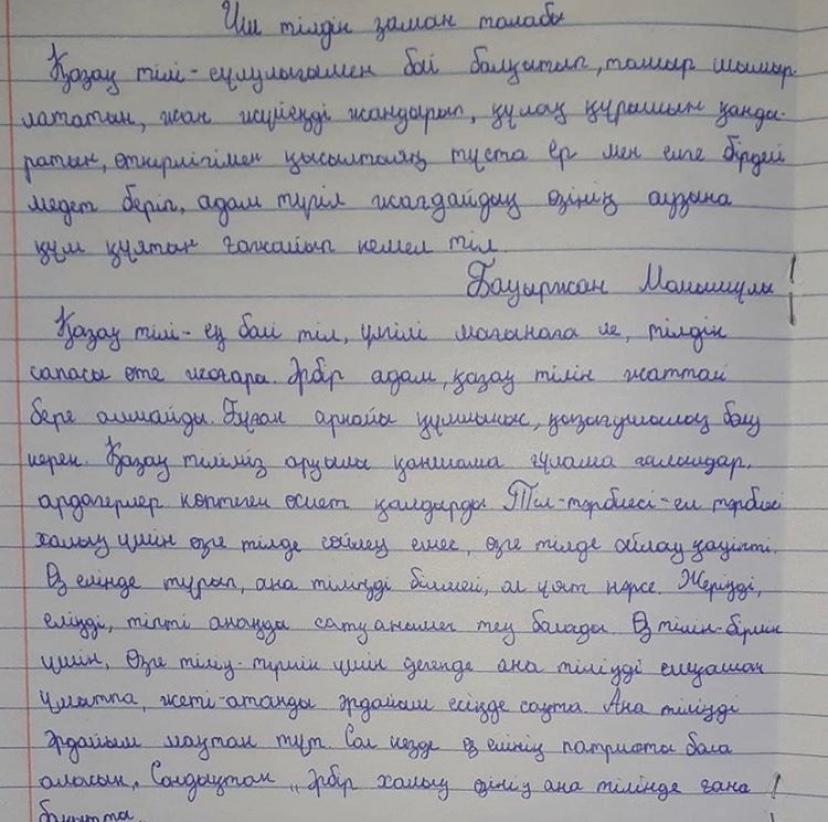 Үш тілдін заман талабы
Қазақ тілі - сұлулығымен бай балқытып, тамыр шымыр-
лататын, жан жүйеңді жандырып, құлақ құрышын қанды-
ратын, өткірлігімен қысылтаяң тұста ер мен елге бірдей
медет беріп, адам түгіл жағдайдың өзінің аузына
құм құятын ғажайып кемел тіл.
Бауыржан Момышұлы
Қазақ тілі - ең бай тіл, үлгілі мағынаға ие, тілдін
сапасы өте жоғары. Әрбір адам, қазақ тілін жаттай
бере алмайды. Бұған арнайы құлшыныс, болу
керек. Қазақ тіліміз арқылы қаншама ғұлама ғалымдар,
ардагерлер көптеген өсиет қалдырды. Тіл-тәрбиесі - ел тәрбиесі
халық үшін өзге тілде сөйлеу емес, өзге тілде ойлау қауіпті.
Өз елінде тұрып, ана тіліңді білмей, ол ұят нәрсе. Жеріңді,
еліңді, тіпті анаңды сатуанымен тең болады. Өз тілін-бірлік
үшін, өзге тілің-тірлік үшін дегенде ана тіліңді ешқашан
ұмытпа, жеті-атанды әрдайым есіңде сақта. Ана тіліңді
әрдайым мақтан тұт. Сол кезде өз елінің патриоты бола
аласың. Сондықтан „Әрбір халық өзінің ана тілінде ғана
бақытта.